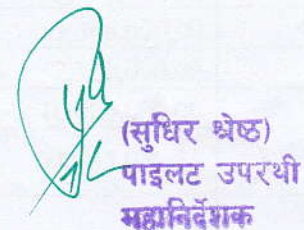 (सुधिर श्रेष्ठ)
पाइलट उपरथी
महानिर्देशक